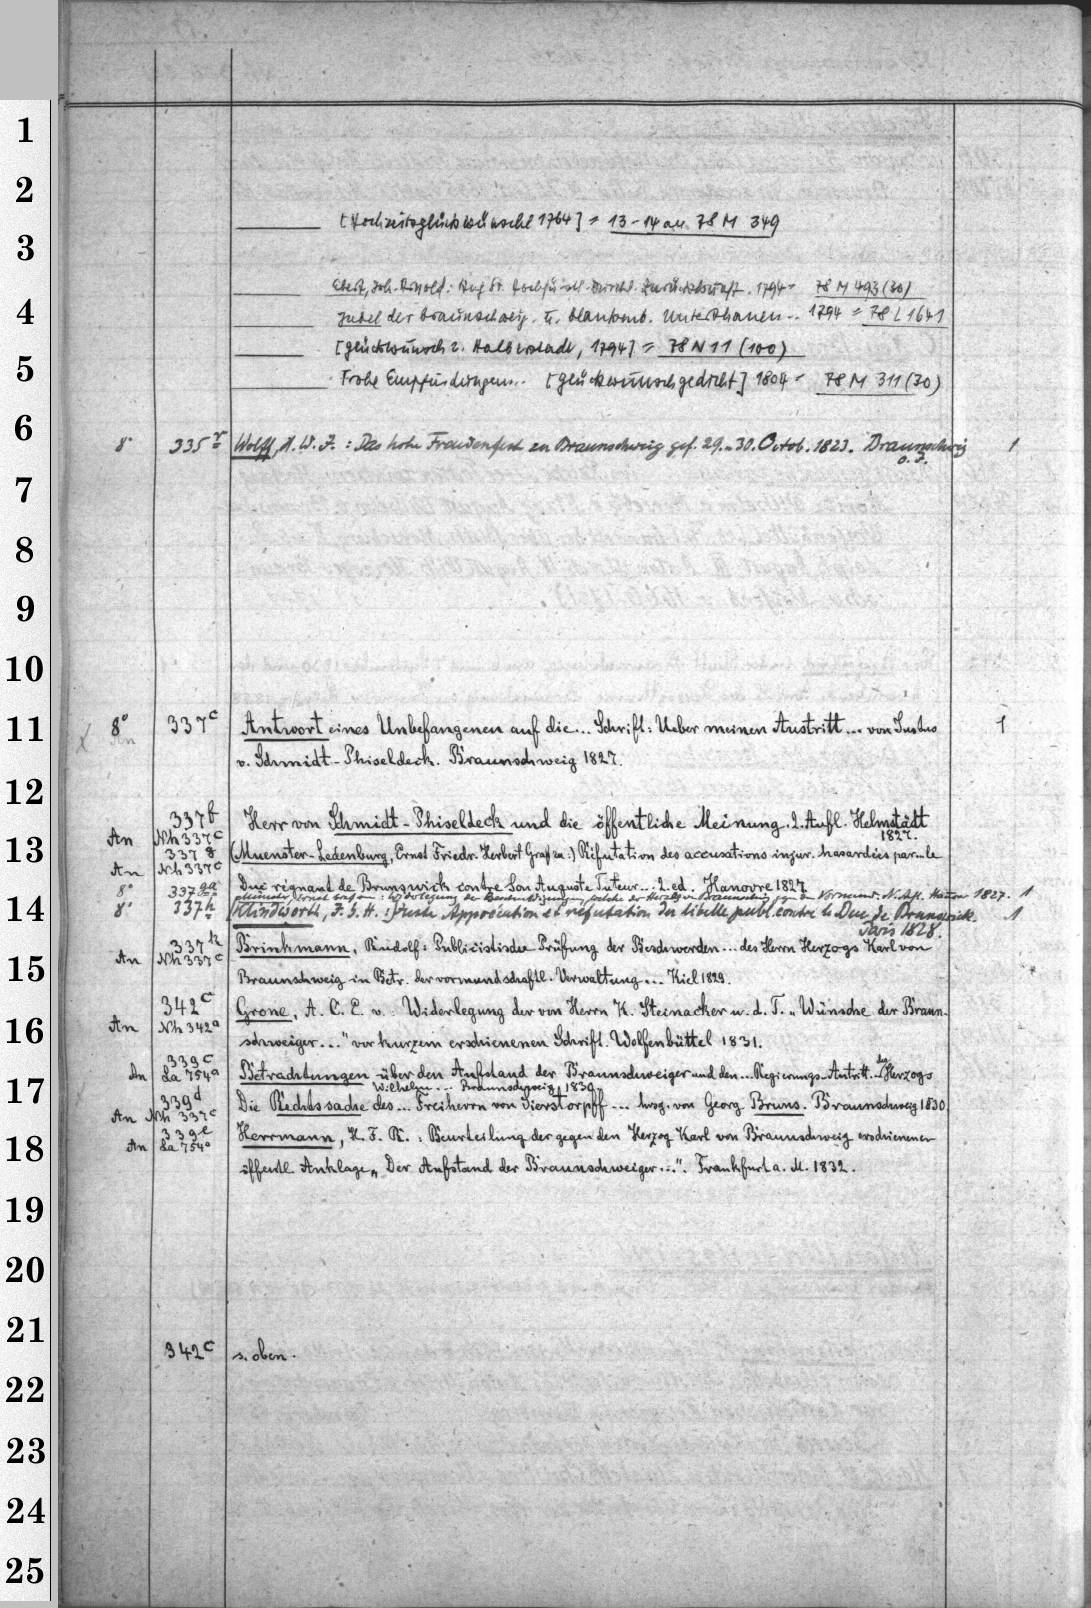 1
2
[Hochzeitsglückwünsche 1764] = 13-14 an 78 M 349
3
Ebert, Joh. Arnold: Auf Zurückkunft. 1794 = 78 M 493 (30)
4
Jubel der braunschweig. u. blankenb. Unterthanen .. 1794 = 78 L 1641
[Glückwunsch z. Halberstadt, 1794] = 78 N 11 (100)
5
Frohe Empfindungen.. [Glückwunschgedicht] 1804 = 78 M 311 (30)
6
8° 335 r Wolff, H. W. F. : Das hohe Freudenfest zu Braunschweig gef. 29. u. 30. Octob. 1823. Braunschweig 1
o. J.
7
8
9
10
11
8° 337c Antwort eines Unbefangenen auf die... Schrift: Ueber meinen Austritt ... von Justus 1
An
v. Schmidt-Phiseldeck. Braunschweig 1827.
12
337f Herr von Schmidt-Phiseldeck und die öffentliche Meinung. 2. Aufl. Helmstädt
An Nh 337c 1827.
13
337g (Muenster-Ledenburg, Ernst Friedr. Herbert Graf zu:) Réfutation des accusations injur. hasardées par... le
An Nh 337c
Duc régnant de Brunswick contre Son Auguste Tuteur... 2. ed. Hanovre 1827
8° 337ga Münster, Ernst Graf zu: Widerlegung der welche der Herzog von Braunschweig gegen Vormund. N. Aufl. Hannover 1827. 1
14
8° 337h Klindworth, J. G. H. : Juste Appréciation et réfutation du libelle publ. contre le Duc de Brunswick. 1
Paris 1828.
337k Brinkmann, Rudolf: Publicistische Prüfung der Beschwerden ... des Herrn Herzogs Karl von
An Nh 337c
15
Braunschweig in Betr. der vormundschaftl. Verwaltung ... Kiel 1829.
342c Grone, A. C. E. v. : Widerlegung der von Herrn K. Steinacker u. d. T. „Wünsche der Braun-
An Nh 342a
16
schweiger..." vor kurzem erschienenen Schrift. Wolfenbüttel 1831.
339c Betrachtungen über den Aufstand der Braunschweiger und den... Regierungs-Antritt des Herzogs
An La 754a
Wilhelm ... Braunschweig 1830.
17
339d Die Rechtssache des... Freiherrn von Sierstorpff ... hrsg. von Georg Bruns. Braunschweig 1830
An Nh 337c
339e Herrmann, K. F. R. : Beurteilung der gegen den Herzog Karl von Braunschweig erschienenen
An La 754a
18
öffentl. Anklage „Der Aufstand der Braunschweiger...". Frankfurt a. M. 1832.
19
20
21
342c s. oben.
22
23
24
25